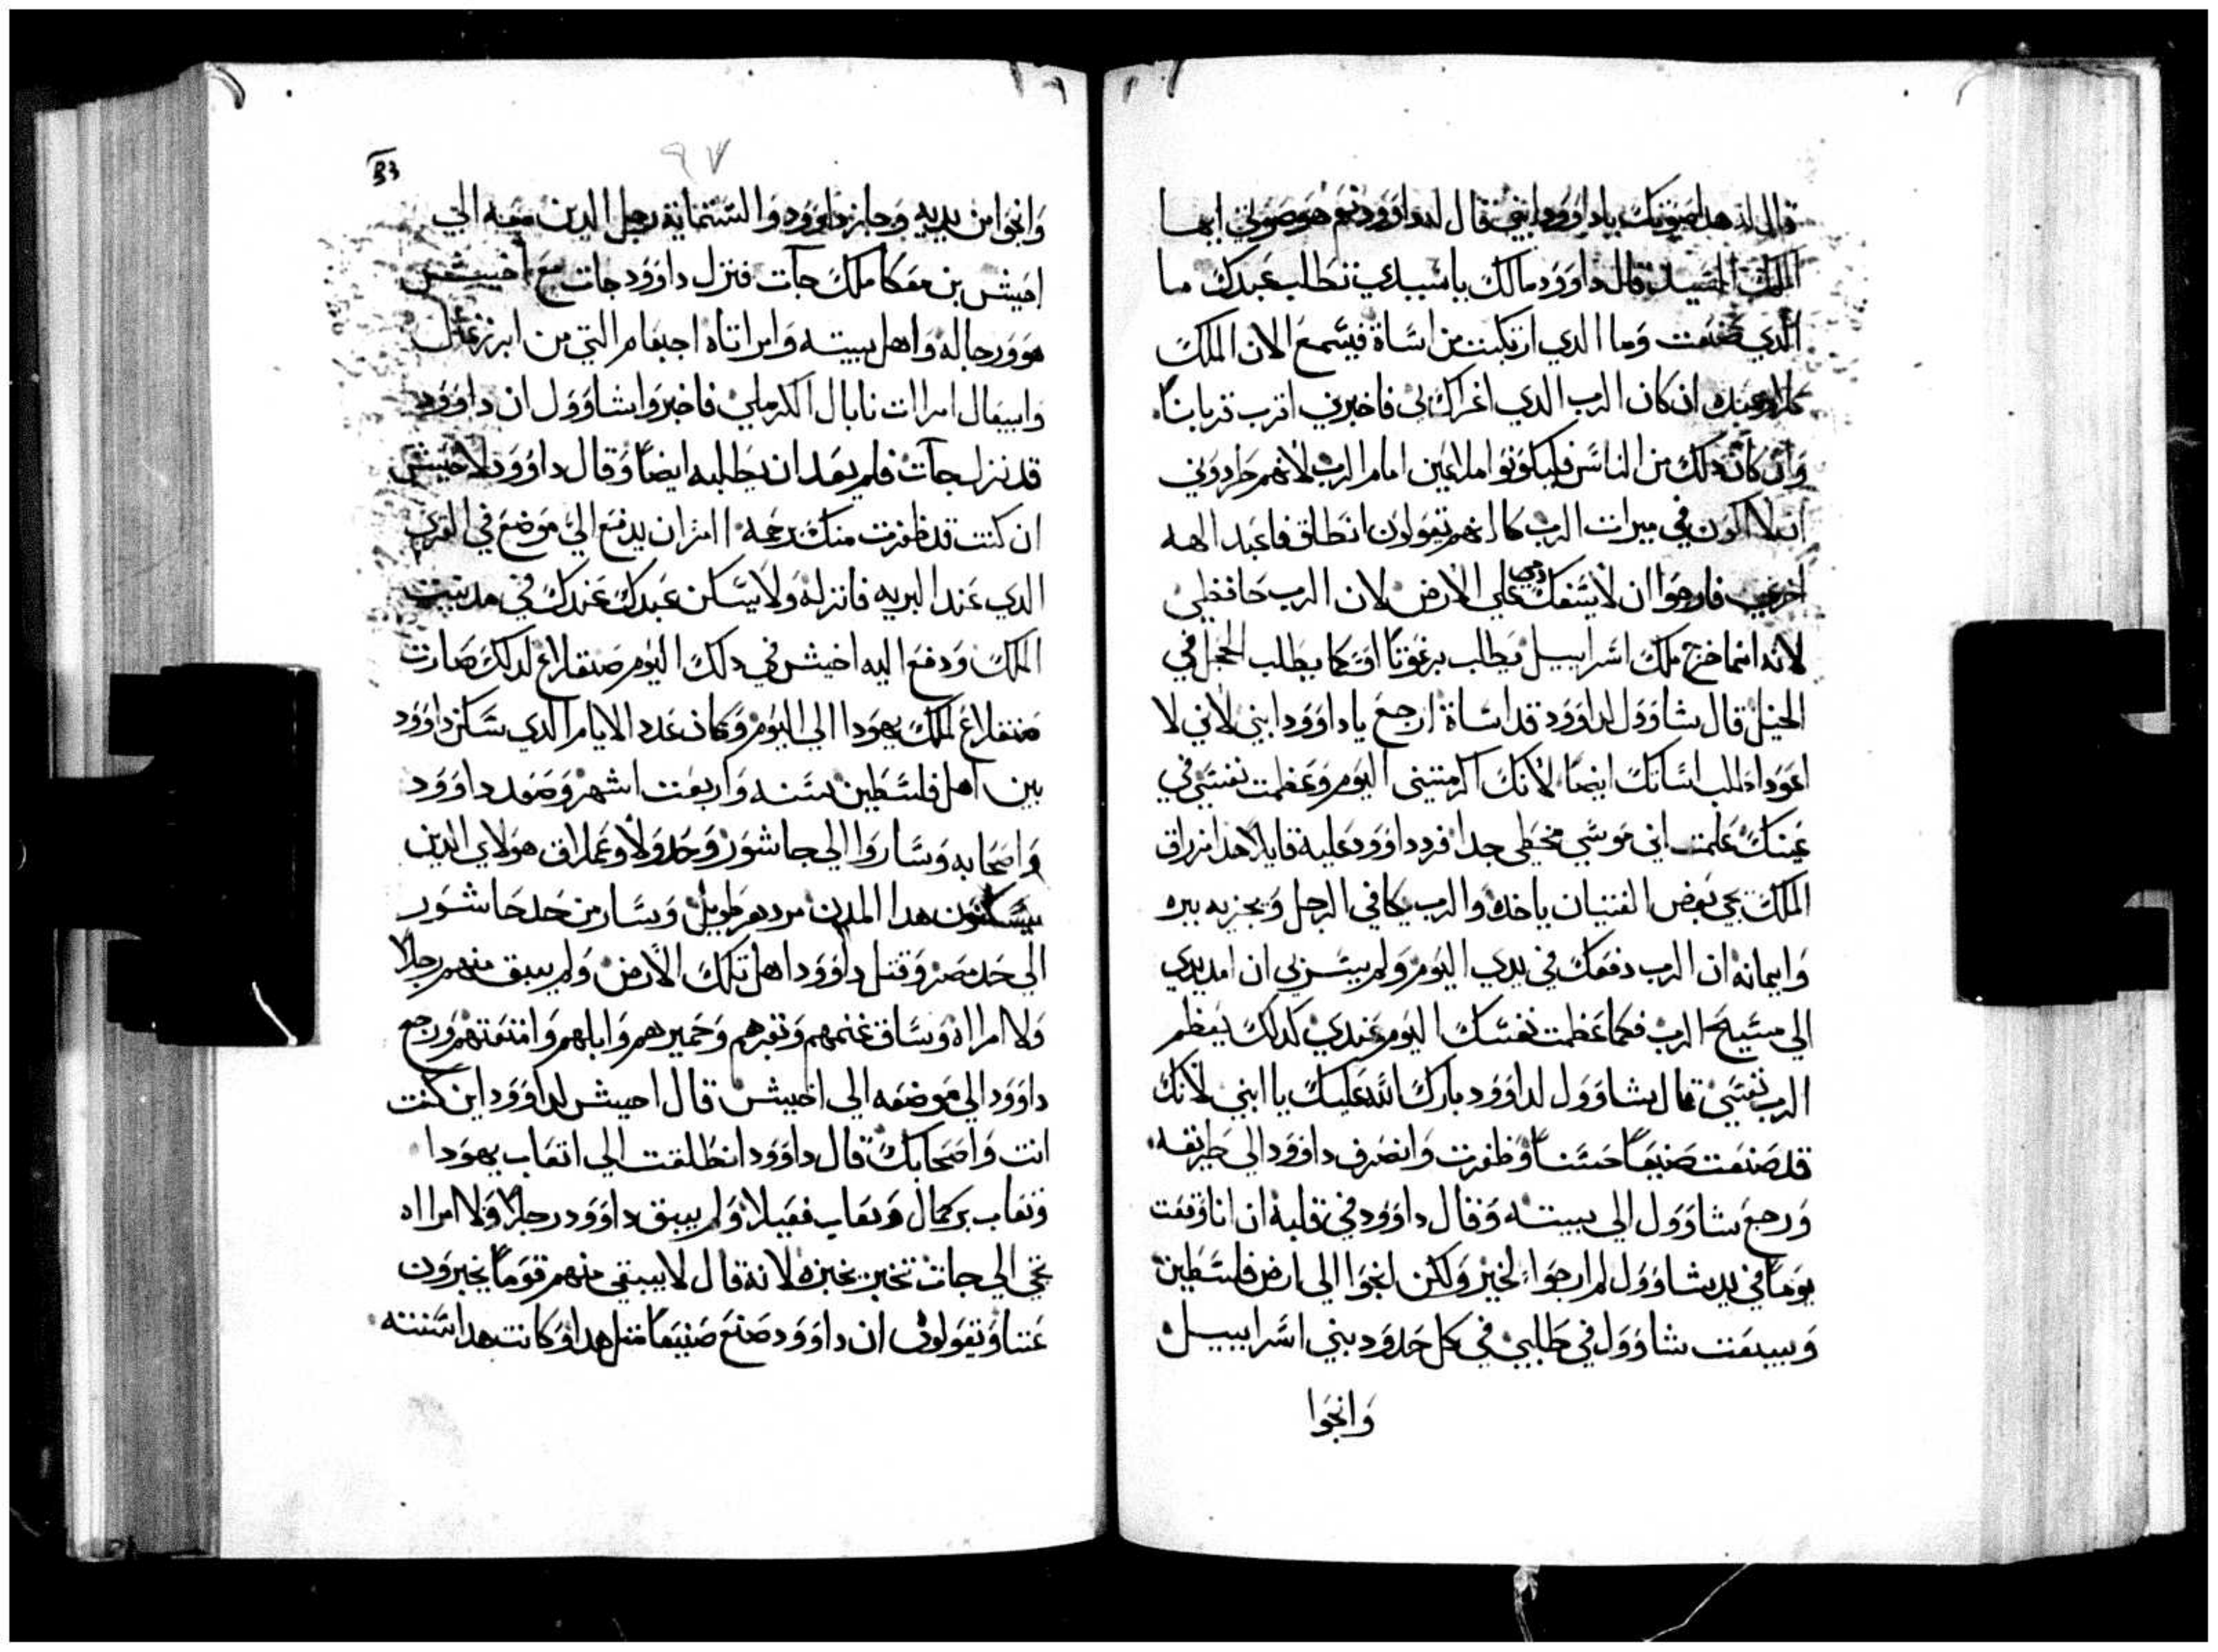 قال له هدا صوتك ياداوود ابني فقال له داوود نعم هو صوتي ايها
الملك السيد قال داوود مالك ياسيدي تطلب عبدك ما
الدي صنعت وما الدي ارتكبت من اساة فيسمع الان الملك
كلام عبده ان كان الرب الدي اغراك بي فاخبرني اقرب قربانًا
وان كان دلك من الناس فليكونوا ملاعين امام الرب لانهم طردوني
ان لا اكون في ميرات الرب كانهم يقولون انطلق فاعبد الهه
اخري فارجوا ان لا يسفك دمي علي الارض لان الرب حافظي
لانه انما خرج ملك اسراييل يطلب برغوتًا او كما يطلب الحجل في
الجبل قال شاوول لداوود قد اساة ارجع ياداوود ابني لاني لا
اعود اطلب اساتك ايضًا لانك اكرمتني اليوم وعظمت نفسي في
عينك علمت اني موسي مخطي جدا فرد داوود عليه قايلا هدا مزراق
الملك يجي بعض الفتيان ياخده والرب يكافي الرجل ويجزيه ببره
وايمانه ان الرب دفعك في يدي اليوم ولم يسرني ان امد يدي
الي مسيح الرب فكما عظمت نفسك اليوم عندي كدلك يعظم
الرب نفسي قال شاوول لداوود بارك الله عليك يا ابني لانك
قد صنعت صنيعًا حسنًا وظفرت وانصرف داوود الي طريقه
ورجع شاوول الي بيته وقال داوود في قلبه ان انا وقعت
يومًا في يد شاوول لم ارجوا الخير ولكن انجوا الي ارض فلسطين
وييبعت شاوول في طلبي في كل حدود بني اسراييل
وانجوا
٩٧
وانجوا من يديه وجاز داوود والستماية رجل الدين معه الي
اخيش بن معكا ملك جات فنزل داوود جات مع اخييش
هو ورجاله واهل بيته وامراتاه اجيعام التي من ابرزعال
وابيغال امرات نابال الكرملي فاخبروا شاوول ان داوود
قد نزل جات فلم يعد ان يطلبه ايضًا وقال داوود لاخيش
ان كنت قد ظفرت منك برحمه امر ان يدفع الي موضع في القري
الدي عند البريه فانزله ولا يسكن عبدك عندك في مدينت
الملك ودفع اليه اخيش في دلك اليوم صنقلاغ لدلك صارت
صنقلاغ لملك يهودا الي اليوم وكان عدد الايام الدي سكن داوود
بين اهل فلسطين سنه واربعت اشهر وصعد داوود
واصحابه وساروا الي جاشور وحدولا وعملاق هولاي الدين
يسكنون هدا المدن من دهر طويل وسار من حد جاشور
الي حد مصر وقتل داوود اهل تلك الارض ولم يبق منهم رجلا
ولا امراه وساق غنمهم وبقرهم وحميرهم وابلهم وامتعتهم ورجع
داوود الي موضعه الي اخييش قال احيش لداوود اين كنت
انت واصحابك قال داوود انطلقت الي اتعاب يهودا
وتعاب يركمال وتعاب فقيلا ولم يبق داوود رجلا ولا امراه
تجي الي جات تخبر بخبره لانه قال لا يبقي منهم قومًا يخبرون
عنا ويقولون ان داوود صنع صنيعًا متل هدا وكانت هدا سنته